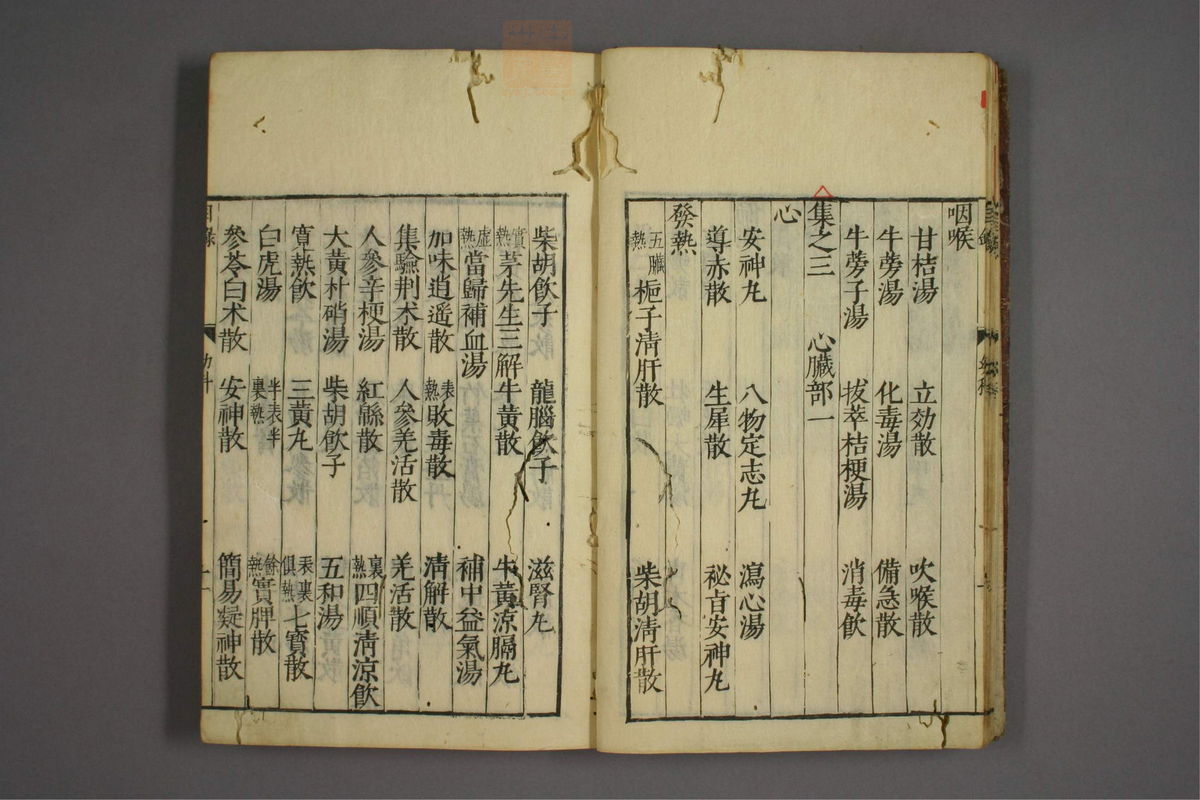 咽喉
甘桔湯 立効散 吹喉散
牛蒡湯 化毒湯 備急散
牛蒡子湯 拔萃桔梗湯 消毒飲
集之三 心臟部一
心
安神丸 八物定志丸 瀉心湯
導赤散 生犀散 祕旨安神丸
發熱
五臟熱 梔子清肝散 柴胡清肝散
柴胡飲子 龍腦飲子 滋腎丸
實熱 茅先生三解牛黃散 牛黃涼膈丸
虛熱 當歸補血湯 補中益氣湯
加味逍遥散 表熱 敗毒散 清解散
集驗荆术散 人參羌活散 羌活散
人參辛梗湯 紅緜散 裏熱 四順清涼飲
大黃朴硝湯 柴胡飲子 五和湯
實熱飲 三黃丸 表裏俱熱 七寳散
白虎湯 半表半裏熱 餘熱 實脾散
參苓白术散 安神散 簡易凝神散
目錄 幼科